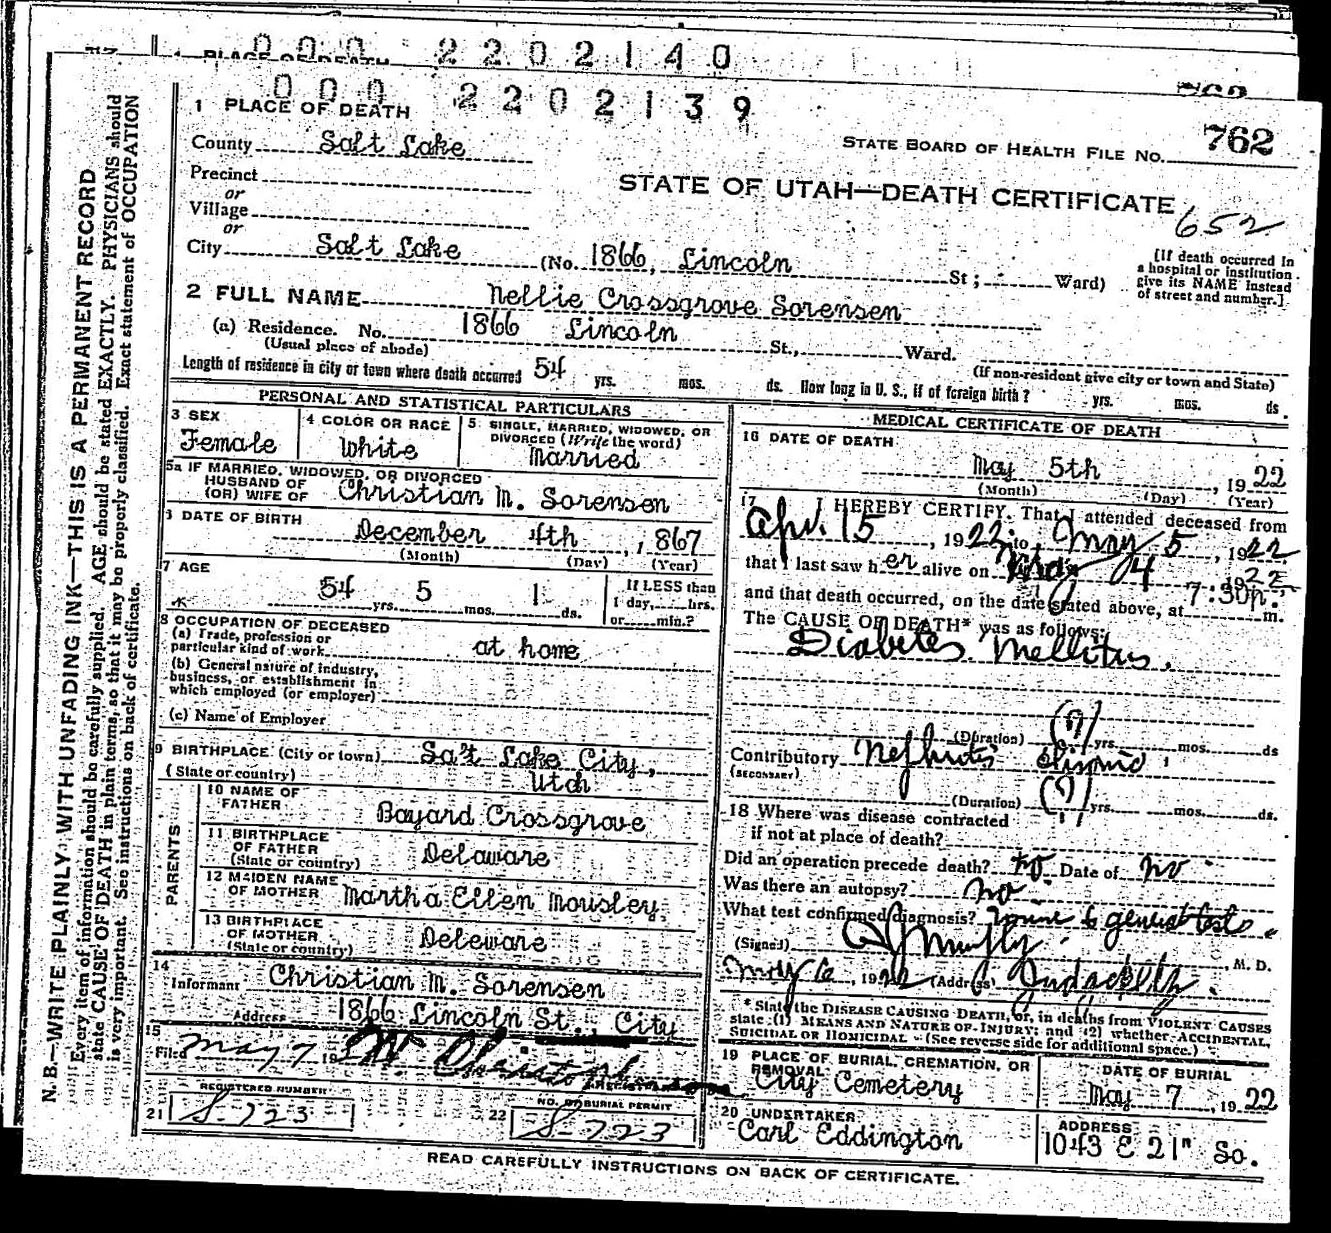 0 0 0 2 2 0 2 1 4 0
PLACE OF DEATH
0 0 0 2 2 0 2 1 3 9
1 PLACE OF DEATH
County Salt Lake
STATE BOARD OF HEALTH FILE No. 762
Precinct
or
STATE OF UTAH—DEATH CERTIFICATE
652
Village
or
City Salt Lake (No. 1866, Lincoln St; Ward)
[If death occurred in
a hospital or institution
give its NAME instead
of street and number.]
2 FULL NAME Nellie Crossgrove Sorensen
(a) Residence. No. 1866 Lincoln St., Ward.
(Usual place of abode)
(If non-resident give city or town and State)
Length of residence in city or town where death occurred 54 yrs. mos. ds. How long in U. S., if of foreign birth? yrs. mos. ds.
PERSONAL AND STATISTICAL PARTICULARS
3 SEX
Female
4 COLOR OR RACE
White
5 SINGLE, MARRIED, WIDOWED, OR
DIVORCED (Write the word)
Married
5a IF MARRIED, WIDOWED, OR DIVORCED
HUSBAND OF
(OR) WIFE OF Christian M. Sorensen
6 DATE OF BIRTH
December 4th, 1867
(Month) (Day) (Year)
7 AGE
54 yrs. 5 mos. 1 ds.
If LESS than
1 day, hrs.
or min.?
8 OCCUPATION OF DECEASED
(a) Trade, profession or
particular kind of work at home
(b) General nature of industry,
business, or establishment in
which employed (or employer)
(c) Name of Employer
9 BIRTHPLACE (City or town) Salt Lake City,
(State or country) Utah
PARENTS
10 NAME OF
FATHER Bayard Crossgrove
11 BIRTHPLACE
OF FATHER
(State or country) Delaware
12 MAIDEN NAME
OF MOTHER Martha Ellen Mousley
13 BIRTHPLACE
OF MOTHER
(State or country) Deleware
14
Informant Christian M. Sorensen
Address 1866 Lincoln St., City
15
Filed May 7 19
REGISTERED NUMBER
21 S-723
NO. OF BURIAL PERMIT
22 S-723
MEDICAL CERTIFICATE OF DEATH
16 DATE OF DEATH
May 5th, 1922
(Month) (Day) (Year)
17 I HEREBY CERTIFY, That I attended deceased from
Apr. 15, 1922 to May 5, 1922
that I last saw her alive on May 4 1922
and that death occurred, on the date stated above, at 7:30 p. m.
The CAUSE OF DEATH* was as follows:
Diabetes Mellitus.
(Duration) (?) yrs. mos. ds
Contributory Nephritis Chronic
(SECONDARY)
(Duration) (?) yrs. mos. ds.
18 Where was disease contracted
if not at place of death?
Did an operation precede death? no. Date of no.
Was there an autopsy? no.
What test confirmed diagnosis? Urine & general tests.
(Signed) M. D.
May 6, 1922 (Address)
* State the DISEASE CAUSING DEATH, or, in deaths from VIOLENT CAUSES
state (1) MEANS AND NATURE OF INJURY; and (2) whether ACCIDENTAL,
SUICIDAL OR HOMICIDAL (See reverse side for additional space.)
19 PLACE OF BURIAL, CREMATION, OR
REMOVAL
City Cemetery
DATE OF BURIAL
May 7, 1922
20 UNDERTAKER
Carl Eddington
ADDRESS
1043 E 21" So.
READ CAREFULLY INSTRUCTIONS ON BACK OF CERTIFICATE.
N. B.—WRITE PLAINLY WITH UNFADING INK—THIS IS A PERMANENT RECORD
Every item of information should be carefully supplied. AGE should be stated EXACTLY. PHYSICIANS should
state CAUSE OF DEATH in plain terms, so that it may be properly classified. Exact statement of OCCUPATION
is very important. See instructions on back of certificate.